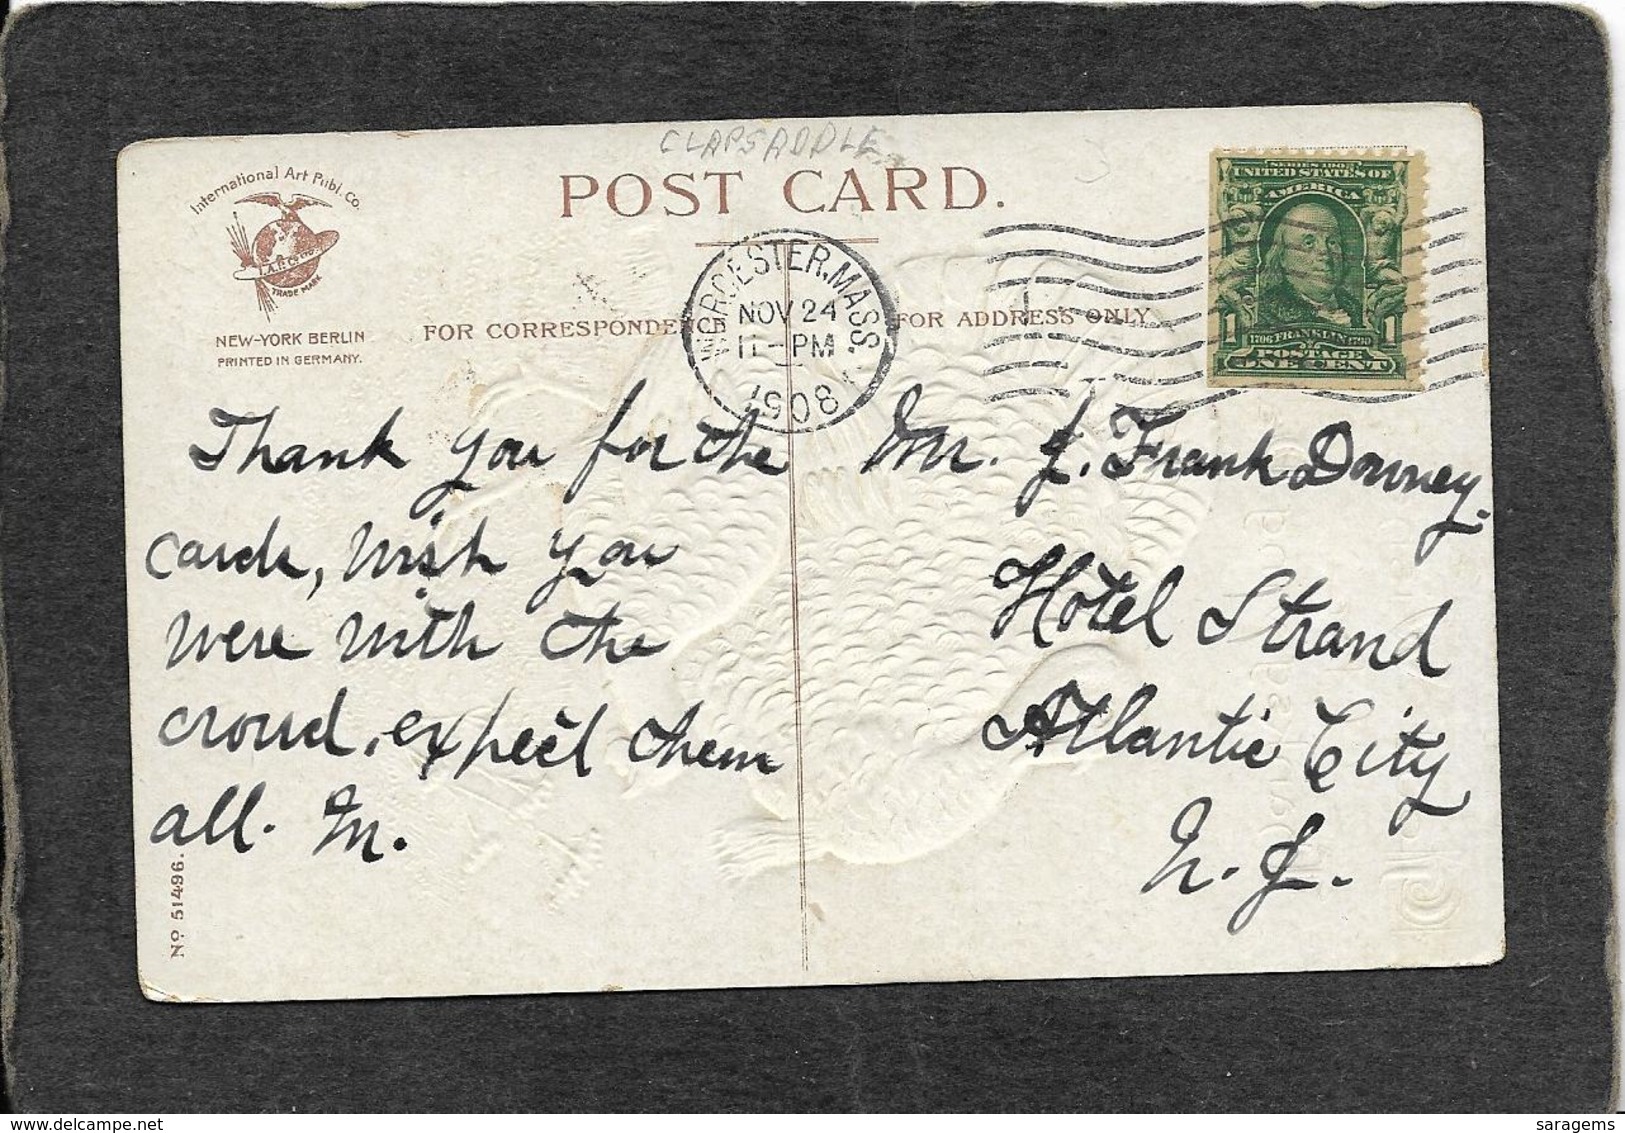 CLAPSADDLE
POST CARD.
International Art Publ. Co.
I.A.P.Co.
TRADE MARK
NEW-YORK BERLIN
PRINTED IN GERMANY.
FOR CORRESPONDENCE
FOR ADDRESS ONLY
WORCESTER, MASS.
NOV 24
11-PM
1908
SERIES 1902
UNITED STATES OF
AMERICA
1706 FRANKLIN 1790
1 1
POSTAGE
ONE CENT
Thank you for the
cards, wish you
were with the
crowd, expect them
all. M.
Mr. J. Frank Downey.
Hotel Strand
Atlantic City
N. J.
No 51496.
delcampe.net
saragems